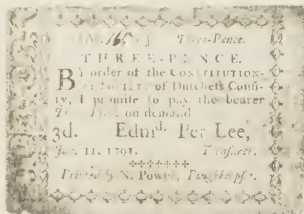 No. 165 Three-Pence.
THREE-PENCE.
BY order of the CONSTITUTION-
SOCIETY of Dutchess Coun-
ty, I promise to pay the bearer
on demand
3d. Edmd. Per Lee,
Jan. 11. 1791. Treasurer.
Printed by N. Power, Poughkeepsie.